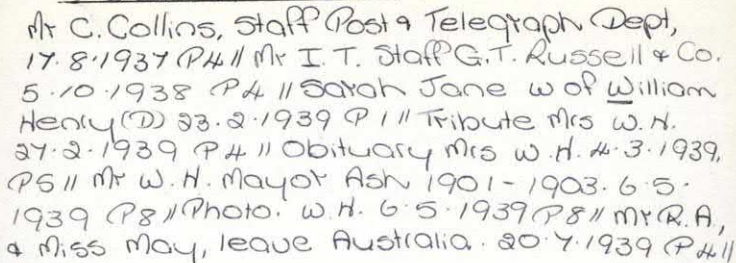 Mr C. Collins, Staff Post & Telegraph Dept,
17.8.1937 P4 // Mr I. T. Staff G.T. Russell & Co.
5.10.1938 P4 // Sarah Jane w of William
Henry (D) 23.2.1939 P1 // Tribute Mrs W.H.
27.2.1939 P4 // Obituary Mrs W.H. 4.3.1939,
P5 // Mr W.H. Mayor Ash 1901-1903. 6.5.
1939 P8 // Photo. W.H. 6.5.1939 P8 // Mr R.A,
& Miss May, leave Australia. 20.7.1939 P4 //